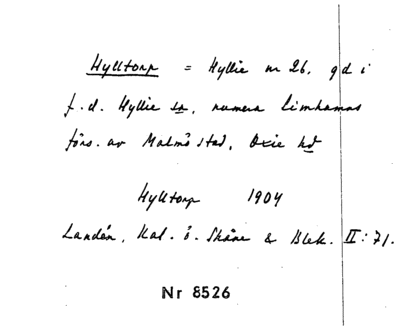 Hylltorp = Hyllie nr 26, gd i
f.d. Hyllie sn, numera Limhamns
förs. av Malmö stad, Oxie hd
Hylltorp 1904
Landén, Kal. ö. Skåne & Blek. II: 71.
Nr 8526